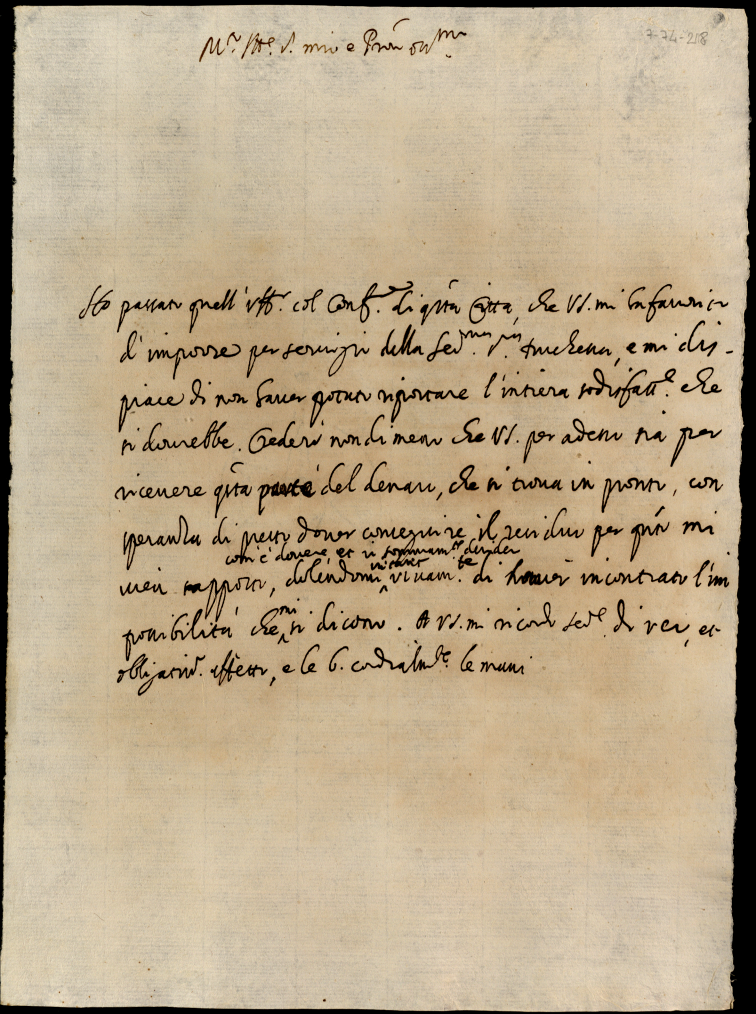 7-74-218
M.r Ill.e S. mio e Pron oss.mo
Ho passato quell'uff.o col Conf.re di q.sta Città, che VS. mi ha favorito
d'imporre per servizii della Sed.ma S.ra, e mi dis-
piace di non haver potuto riportare l'intiera sodisfatt.e che
si dovrebbe. Crederò nondimeno che VS. per adesso sia per
ricevere q.sta parte del denaro, che si trova in pronto, con
speranza di presto dover conseguire il residuo per q.nto mi
com'è dovere, et si
vien rapporto, dolendomi vivam.te di haver incontrato l'im
possibilità che mi si dicono. A VS. mi ricordo sed.e di vero, et
obligatiss.o affetto, e le b. cordialm.te le mani